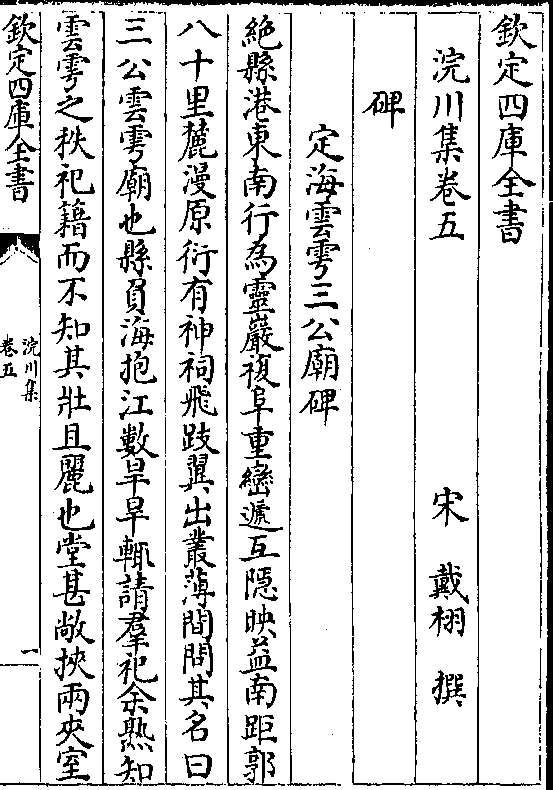 欽定四庫全書
浣川集卷五
宋 戴栩 撰
碑
定海雲雩三公廟碑
絶縣港東南行為靈巖複阜重巒遞互隠映益南距郭
八十里麓漫原衍有神祠飛跂翼翼出叢薄間問其名曰
三公雲雩廟也縣負海抱江數旱旱輒請羣祀余熟知
雲雩之秩祀籍而不知其壯且麗也堂甚敞挾兩夾室
欽定四庫全書
浣川集
卷五
一